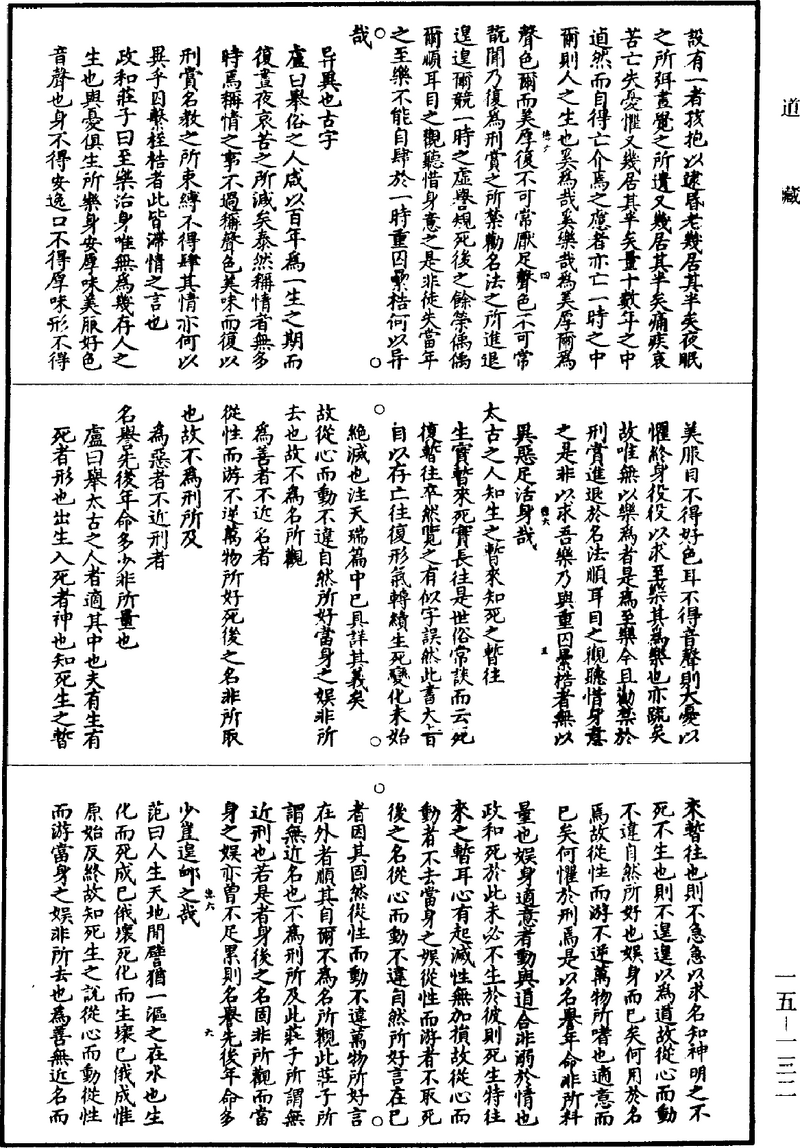 道藏
設有一者孩抱以逮昏老幾居其半矣夜眠
之所弭晝覺之所遺又幾居其半矣痛疾哀
苦亡失憂懼又幾居其半矣量十數年之中
逌然而自得亡介焉之慮者亦亡一時之中
爾則人之生也奚為哉奚樂哉為美厚爾為
聲色爾而美厚復不可常厭足聲色不可常
翫聞乃復為刑賞之所禁勸名法之所進退
遑遑爾競一時之虛譽規死後之餘榮偊偊
爾順耳目之觀聽惜身意之是非徒失當年
之至樂不能自肆於一時重囚纍梏何以异
哉
异異也古字
盧曰舉俗之人咸以百年為一生之期而
復晝夜哀苦之所減矣泰然稱情者無多
時焉稱情之事不過稱聲色美味而復以
刑賞名教之所束縛不得肆其情亦何以
異乎囚繫桎梏者此皆滯情之言也
政和莊子曰至樂治身唯無為幾存人之
生也與憂俱生所樂身安厚味美服好色
音聲也身不得安逸口不得厚味形不得
美服目不得好色耳不得音聲則大憂以
懼終身役役以求至樂其為樂也亦疏矣
故唯無以樂為者是為至樂今且勸禁於
刑賞進退於名法順耳目之觀聽惜身意
之是非以求吾樂乃與重囚纍梏者無以
異惡足活身哉
太古之人知生之暫來知死之暫往
生實暫來死實長往是世俗常談而云死
復暫往卒然覽之有似字誤然此書大旨
自以存亡往復形氣轉續生死變化未始
絕滅也注天瑞篇中已具詳其義矣
故從心而動不違自然所好當身之娛非所
去也故不為名所觀
為善者不近名者
從性而游不逆萬物所好死後之名非所取
也故不為刑所及
為惡者不近刑者
名譽先後年命多少非所量也
盧曰舉太古之人者適其中也夫有生有
死者形也出生入死者神也知死生之暫
來暫往也則不急急以求名知神明之不
死不生也則不遑遑以為道故從心而動
不違自然所好也娛身而已矣何用於名
焉故從性而游不逆萬物所嗜也適意而
已矣何懼於刑焉是以名譽年命非所料
量也娛身適意者動與道合非溺於情也
政和死於此未必不生於彼則死生特往
來之暫耳心有起滅性無加損故從心而
動者不去當身之娛從性而游者不取死
後之名從心而動不違自然所好言在己
者因其固然從性而動不違萬物所好言
在外者順其自爾不為名所觀此莊子所
謂無近名也不為刑所及此莊子所謂無
近刑也若是者身後之名固非所觀而當
身之娛亦曾不足累則名譽先後年命多
少豈遑卹之哉
范曰人生天地間譬猶一漚之在水也生
化而死成已俄壞死化而生壞已俄成惟
原始反終故知死生之說從心而動從性
而游當身之娛非所去也為善無近名而
一五—一三二